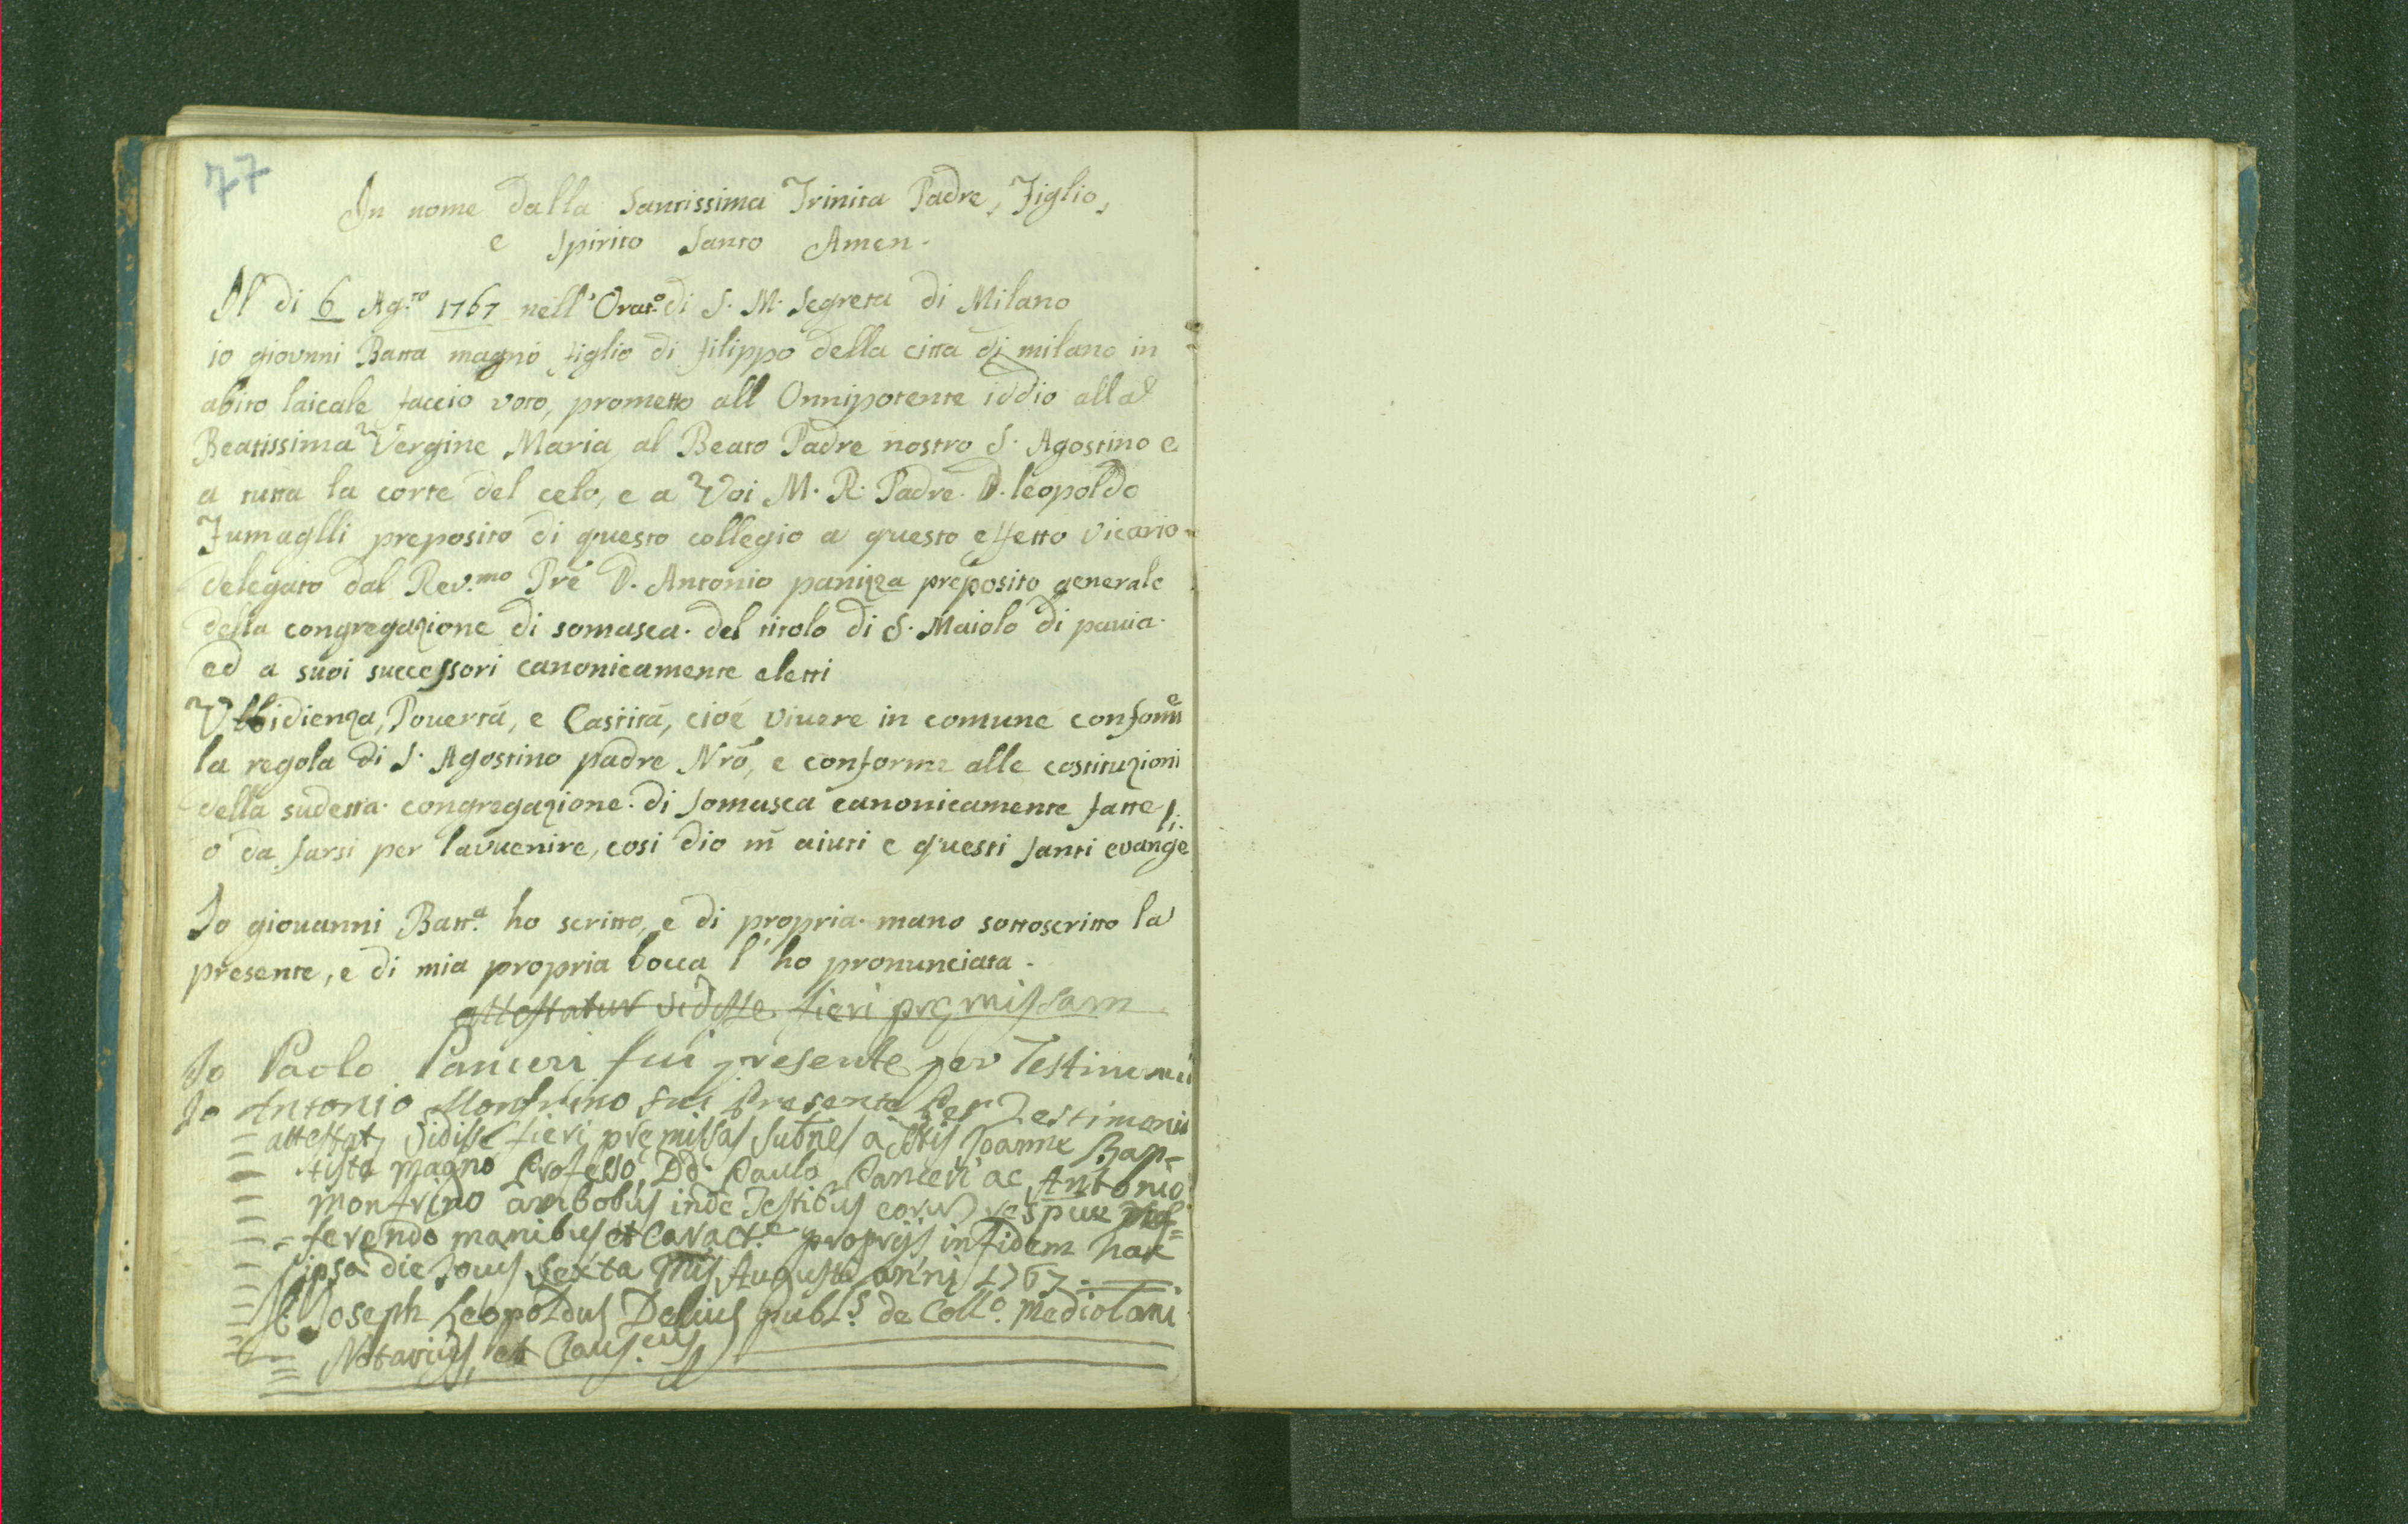 77
In nome dalla Santissima Trinita Padre, Figlio,
e Spirito Santo Amen.
Il di 6 Ag.to 1767 nell' Orat.o di S. M. Segreta di Milano
io giovnni Batta magno figlio di filippo della citta di milano in
abito laicale faccio voto, prometto all Onnipotente iddio alla
Beatissima Vergine Maria, al Beato Padre nostro S. Agostino e
a tutta la corte del celo, e a Voi M. R. Padre. D. leopoldo
Fumaglli preposito di questo collegio a questo effetto vicario
delegato dal Rev.mo Pre D. Antonio paniza preposito generale
della congregazione di somasca. del titolo di S. Maiolo di pauia.
ed a suoi successori canonicamente eletti
Vbbidienza, Pouertá, e Castitá, cioé viuere in comune conforme
la regola di S. Agostino padre Nrõ, e conforme alle costituzioni
della sudetta congregazione. di Somasca canonicamente fatte
ó da farsi per lavuenire, cosi dio m̃ aiuti e questi santi evangeli.
Io giouanni Batt.a ho scritto, e di propria. mano sottoscritto la
presente, e di mia propria bocca l' ho pronunciata.
attestatur vidisse fieri pręmissam
Io Paolo Panceri fui presente per Testimonio
Io Antonio Monfrino fui Presente Per Testimonio
= attestat, Vidisse fieri pręmissas subnes a Joanne Bap=
tista Magno Professo, DD. Paulo Panceri ac Antonio
Monfrino ambobus inde Testibus eorum respue
ferendo manibus et Caract.e proprijs in fidem hac
ipsa die Jouis Sexta Mis Augusti anni 1767.
Joseph Leopoldus Delius publ.s de Coll.o Mediolani
Notarius, et Caus.cus